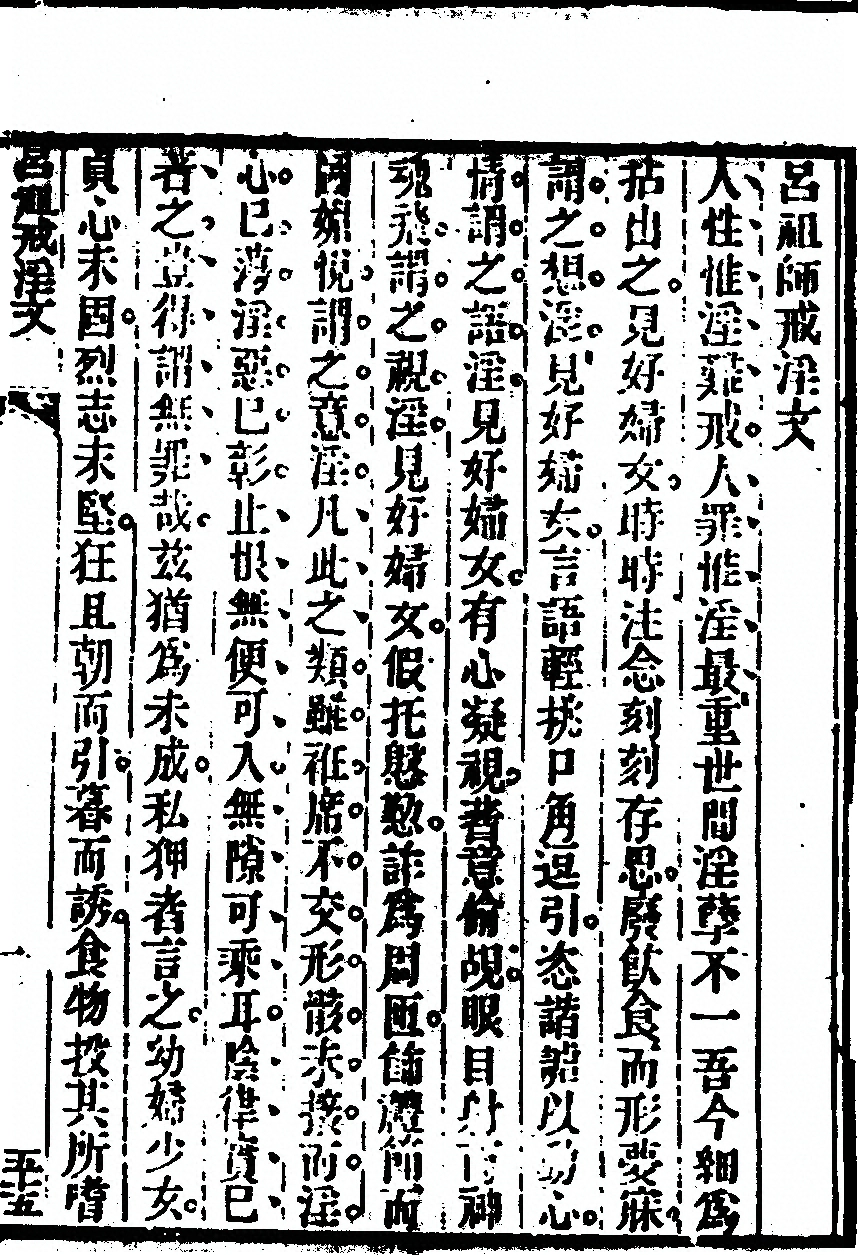 呂祖師戒淫文
人性惟淫難戒人罪惟淫最重世間淫孽不一吾今細爲
拈出之見好婦女時時注念刻刻存思廢飲食而形夢寐
謂之想淫見好婦女言語輕挑口角逗引恣諧謔以動心
情謂之語淫見好婦女有心凝視著意偷覘眼目射而神
魂飛謂之視淫見好婦女假托慇懃詐爲周匝飾禮節而
圖媚悅謂之意淫凡此之類雖袵席不交形骸未接而淫
心已蕩淫惡已彰止恨無便可入無隙可乘耳陰律實已
著之豈得謂無罪哉茲猶爲未成私狎者言之幼婦少女
貞心未固烈志未堅狂且朝而引暮而誘食物投其所嗜
呂祖戒淫文
一